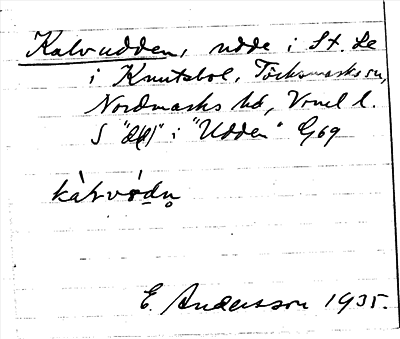 Kalvudden, udde i St. Le
i Knutsbol, Töcksmarks sn,
Nordmarks hd, Vrml l.
S "del" i "Udden" G69
kàɫvòdn̥
E. Andersson 1935.